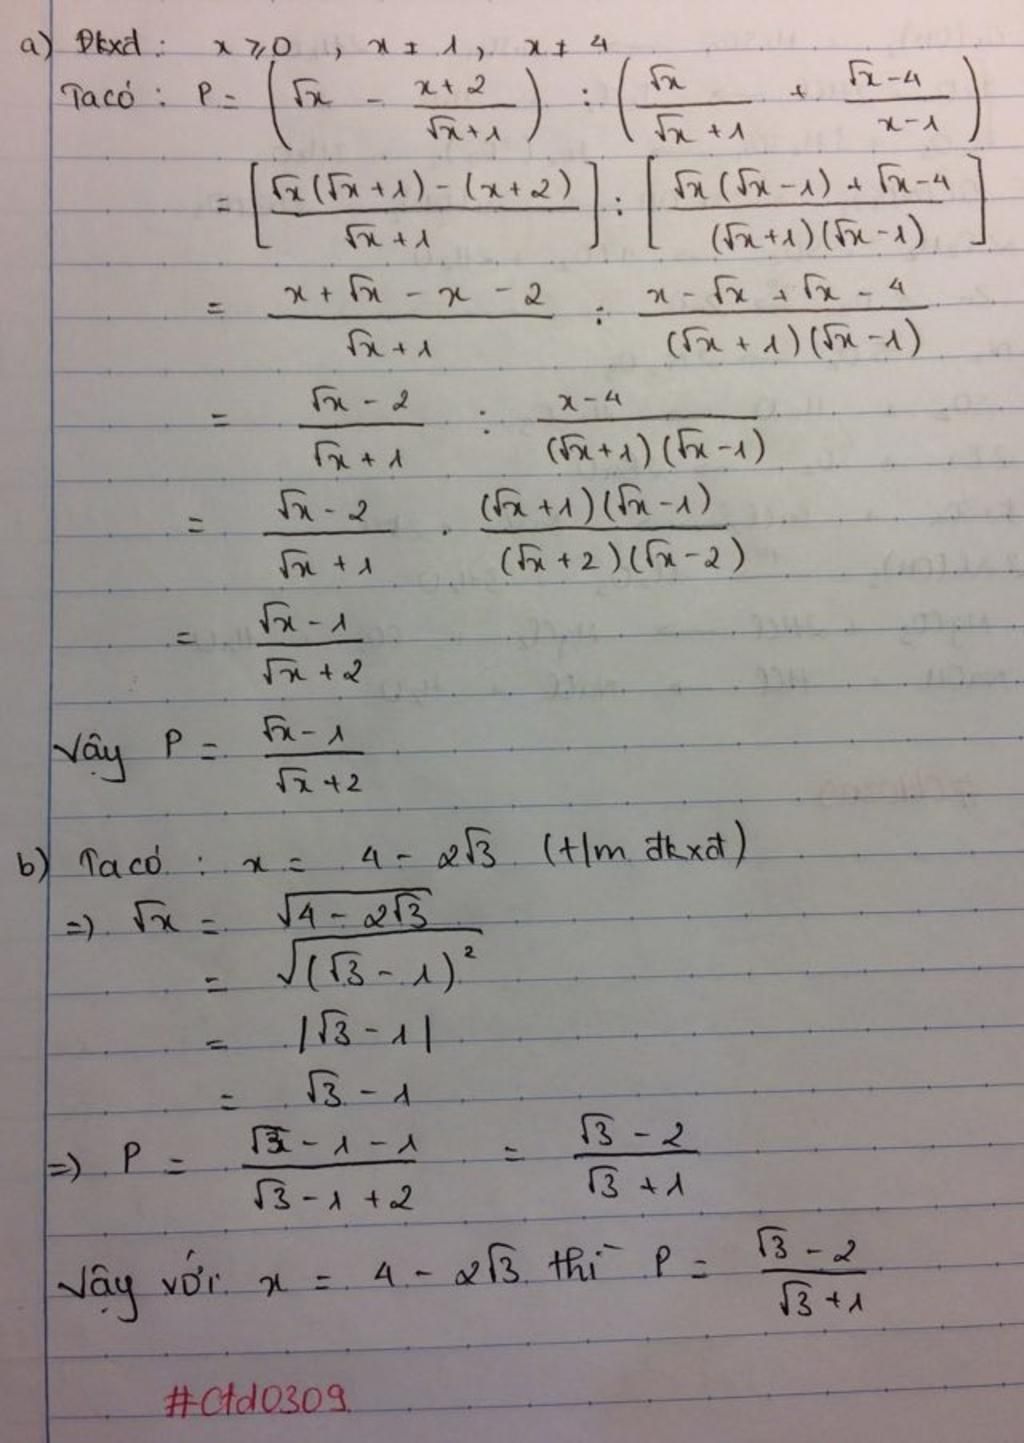 a) Đkxđ : x ⩾ 0 , x ≠ 1 , x ≠ 4
Ta có : P = (√x - (x+2)/(√x+1)) : (√x/(√x+1) + (√x-4)/(x-1))
= [(√x(√x+1) - (x+2))/(√x+1)] : [(√x(√x-1) + √x-4)/((√x+1)(√x-1))]
= (x+√x-x-2)/(√x+1) : (x-√x+√x-4)/((√x+1)(√x-1))
= (√x-2)/(√x+1) : (x-4)/((√x+1)(√x-1))
= (√x-2)/(√x+1) . ((√x+1)(√x-1))/((√x+2)(√x-2))
= (√x-1)/(√x+2)
Vậy P = (√x-1)/(√x+2)
b) Ta có : x = 4 - 2√3 (t/m đkxđ)
=> √x = √(4-2√3)
= √((√3-1)²)
= |√3-1|
= √3-1
=> P = (√3-1-1)/(√3-1+2) = (√3-2)/(√3+1)
Vậy với x = 4 - 2√3 thì P = (√3-2)/(√3+1)
#Ctd0309